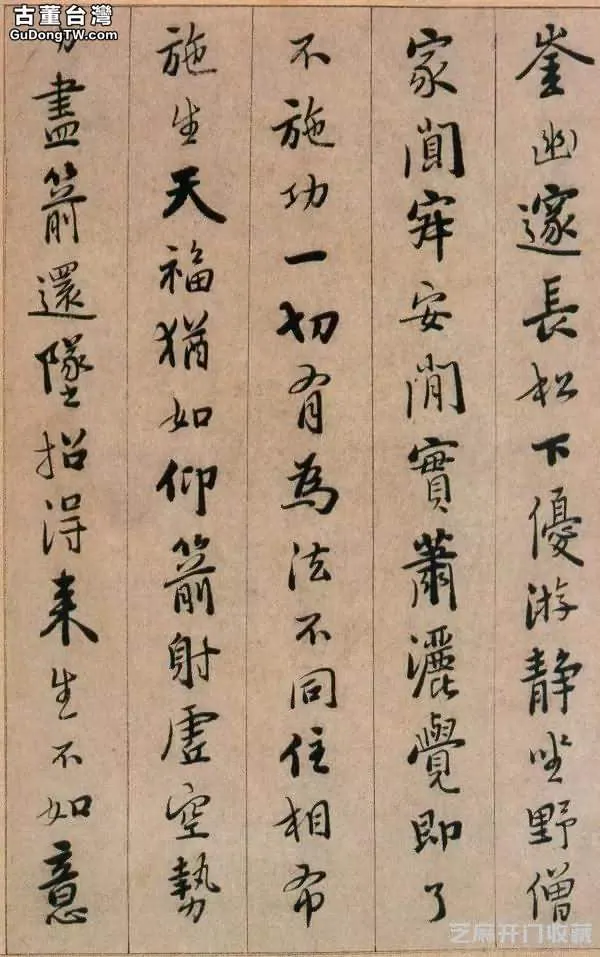 崟幽邃長松下優游静坐野僧
家闃寂安閑實蕭灑覺即了
不施功一切有為法不同住相布
施生天福猶如仰箭射虛空勢
力盡箭還墜招得来生不如意
古董台灣
GuDongTW.com
芝麻开门收藏